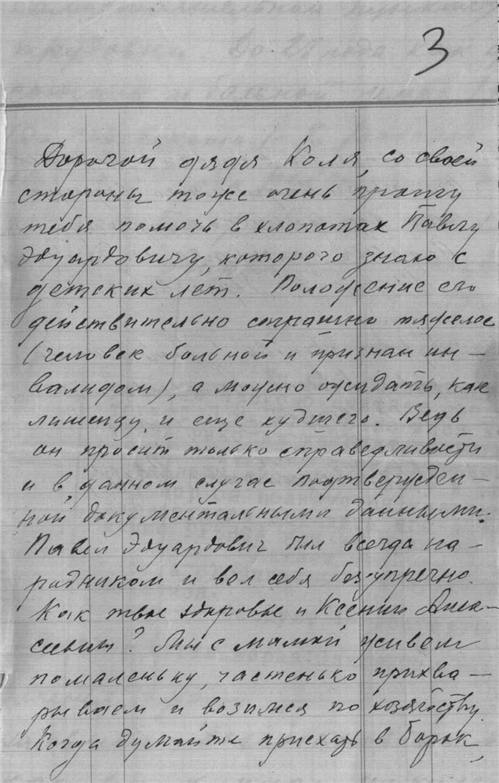 3
Дорогой дядя Коля, со своей
стороны тоже очень прошу
тебя помочь в хлопотах Павлу
Эдуардовичу, которого знаю с
детских лет. Положение его
действительно страшно тяжелое
(человек больной и признан ин-
валидом), а можно ожидать, как
лишенцу, и еще худшего. Ведь
он просит только справедливости
и в данном случае подтвержден-
ной документальными данными.
Павел Эдуардович был всегда на-
родником и вел себя безупречно.
Как твое здоровье и Ксении Алек-
сеевны? Мы с мамой живем
помаленьку, частенько прихва-
рываем и возимся по хозяйству.
Когда думаете приехать в Борок,